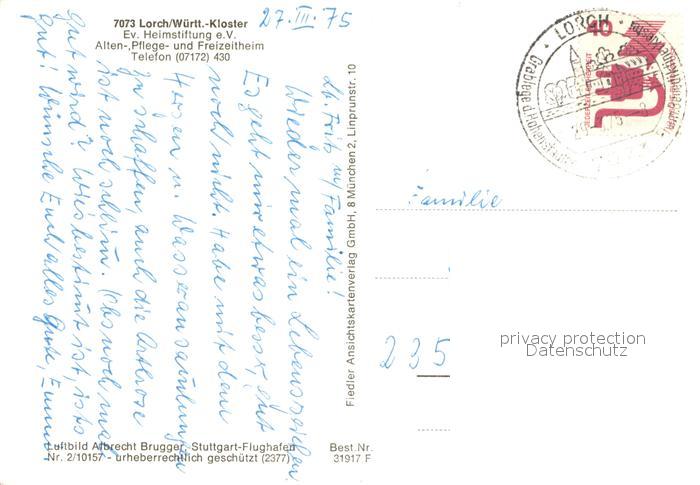 7073 Lorch/Württ.-Kloster
Ev. Heimstiftung e.V.
Alten-,Pflege- und Freizeitheim
Telefon (07172) 430
27. III. 75
Lb. Fritz m/ Familie!
Wieder mal ein Lebenszeichen.
Es geht mir etwas besser, gut
noch nicht. Habe mit dem
Herzen u. Wasseransammlungen
zu schaffen, auch die Artrose
ist noch schlim. Obs noch mal
gut wird? Wies bestimt ist, ists
gut! Wünsche Euch alles Gute,
Luftbild Albrecht Brugger, Stuttgart-Flughafen
Nr. 2/10157 - urheberrechtlich geschützt (2377)
Best.Nr.
31917 F
Fiedler Ansichtskartenverlag GmbH, 8 München 2, Linprunstr. 10
LORCH
Grablege d. Hohenstaufen
40
Familie
235
privacy protection
Datenschutz